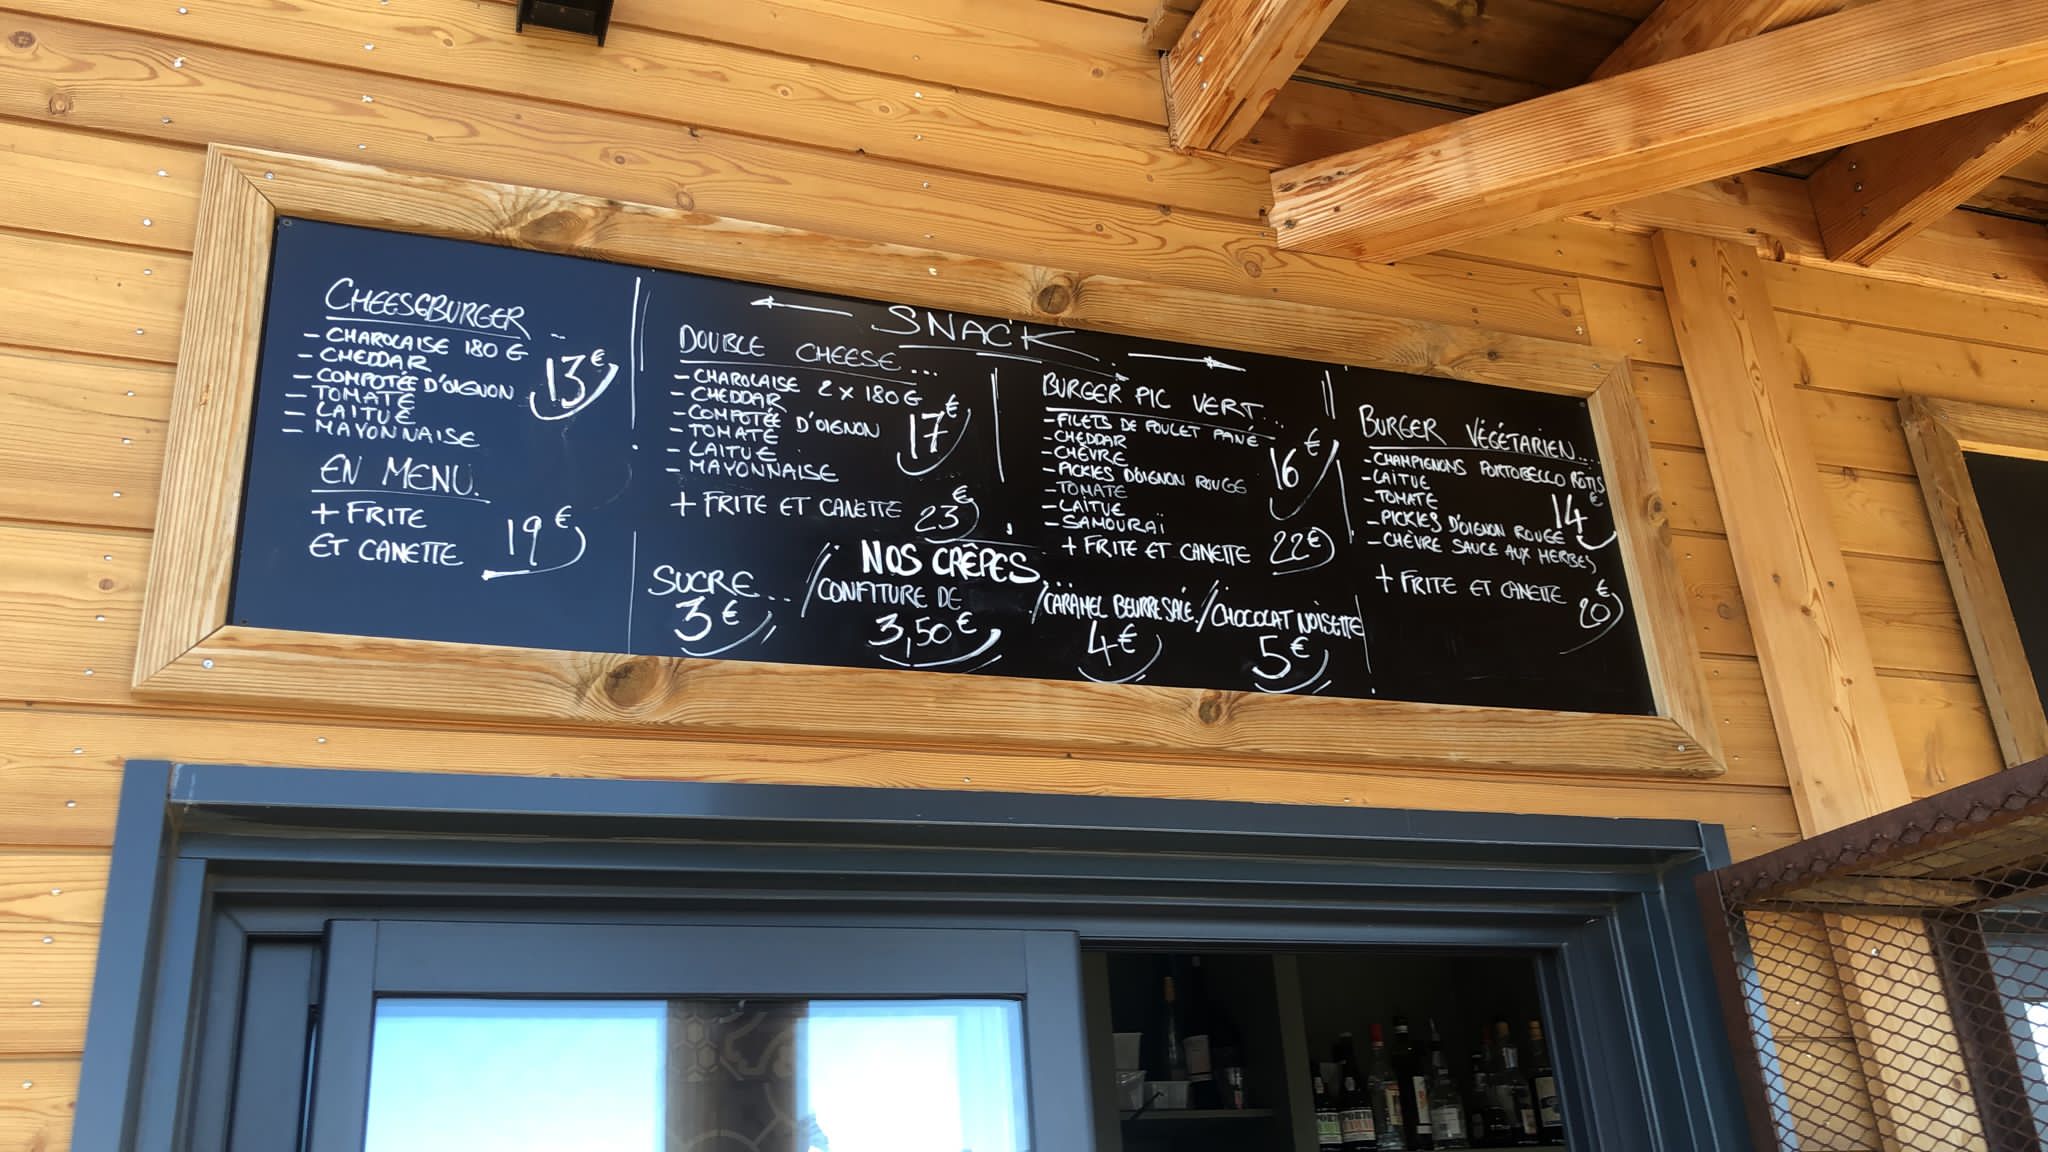 SNACK
CHEESEBURGER...
- CHAROLAISE 180 G
- CHEDDAR
- COMPOTÉE D'OIGNON
- TOMATE
- LAITUE
- MAYONNAISE
13€
EN MENU.
+ FRITE
ET CANETTE
19€
DOUBLE CHEESE...
- CHAROLAISE 2 x 180 G
- CHEDDAR
- COMPOTÉE D'OIGNON
- TOMATE
- LAITUE
- MAYONNAISE
17€
+ FRITE ET CANETTE 23€
BURGER PIC VERT...
- FILETS DE POULET PANÉ
- CHEDDAR
- CHÈVRE
- PICKLES D'OIGNON ROUGE
- TOMATE
- LAITUE
- SAMOURAÏ
16€
+ FRITE ET CANETTE 22€
BURGER VÉGÉTARIEN...
- CHAMPIGNONS PORTOBELLO RÔTIS
- LAITUE
- TOMATE
- PICKLES D'OIGNON ROUGE
- CHÈVRE SAUCE AUX HERBES
14€
+ FRITE ET CANETTE 20€
NOS CRÊPES...
SUCRE... / CONFITURE DE / CARAMEL BEURRE SALÉ / CHOCOLAT NOISETTE
3€ 3,50€ 4€ 5€